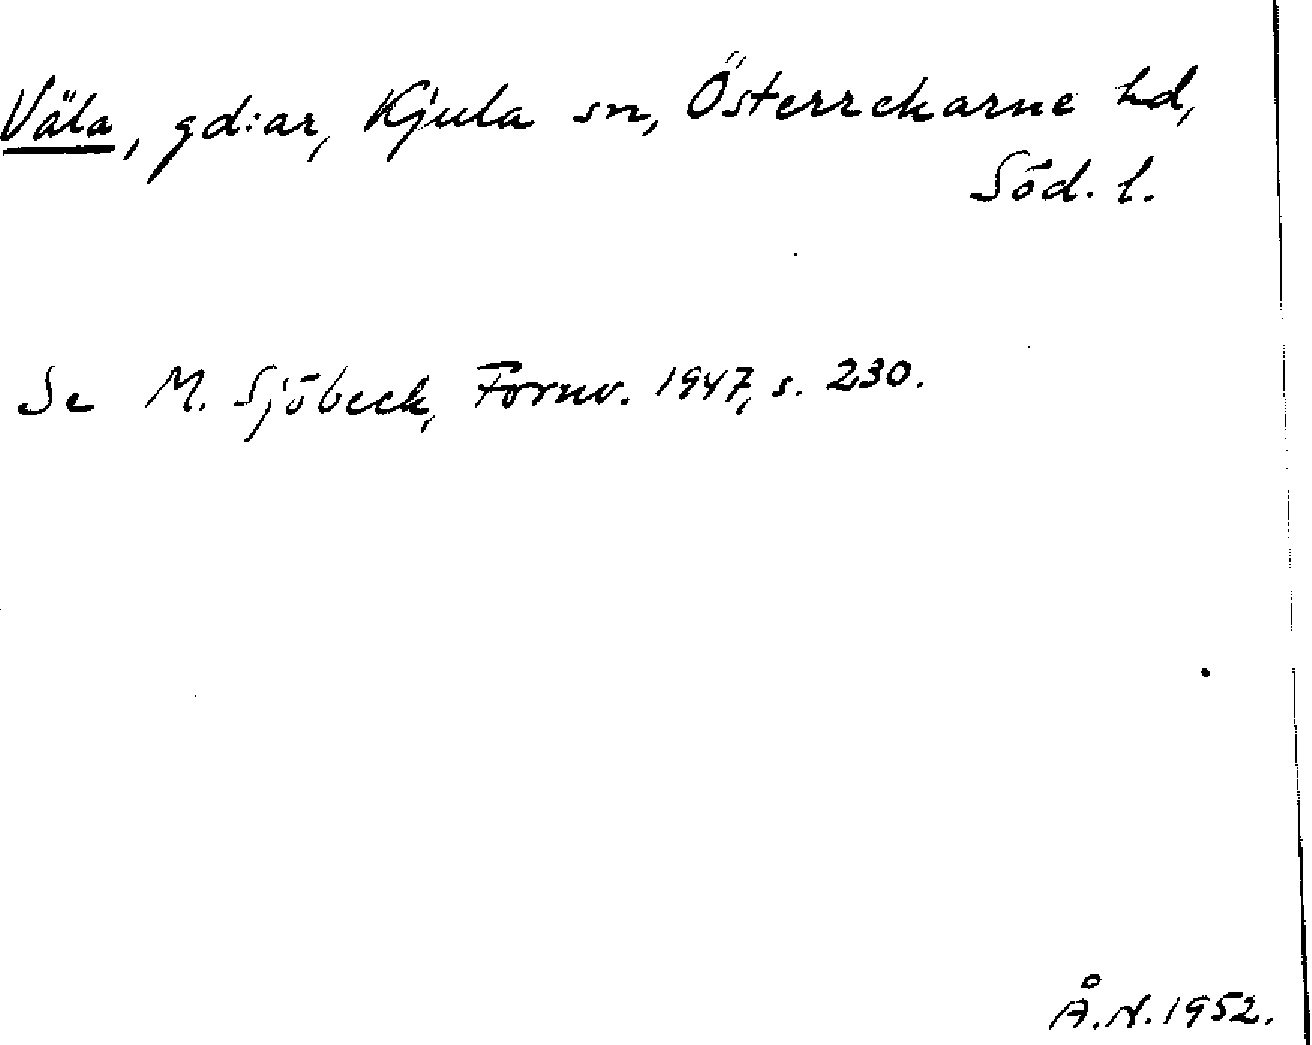 Väla, gd:ar, Kjula sn, Österrekarne hd,
Söd. l.
Se M. Sjöbeck, Fornv. 1947, s. 230.
Å.N. 1952.